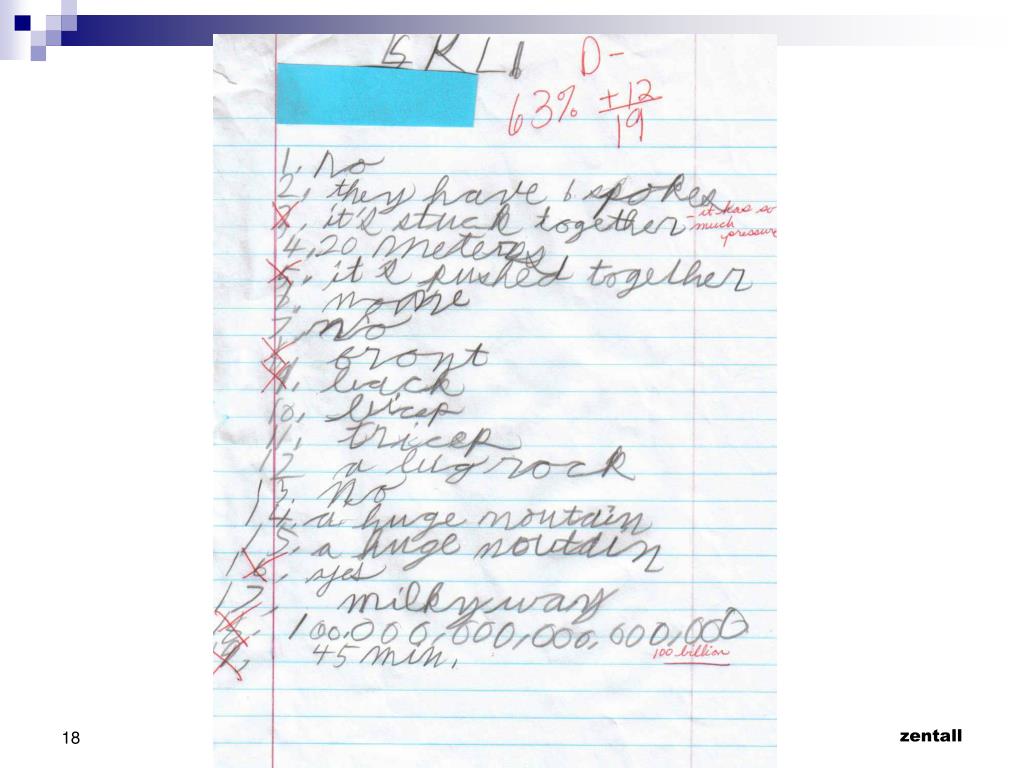 SRLI D-
63% +12
19
1. No
2. they have 6 spokes
3. it's stuck together - it has so
much
pressure
4. 20 meters
5. it's pushed together
6. none
7. no
8. front
9. back
10. bicep
11. tricep
12 a big rock
13. No
14. a huge moutain
15. a huge moutain
16. yes
17. milkyway
18. 100,000,000,000,000,000
100 billion
19. 45 min.
18
zentall